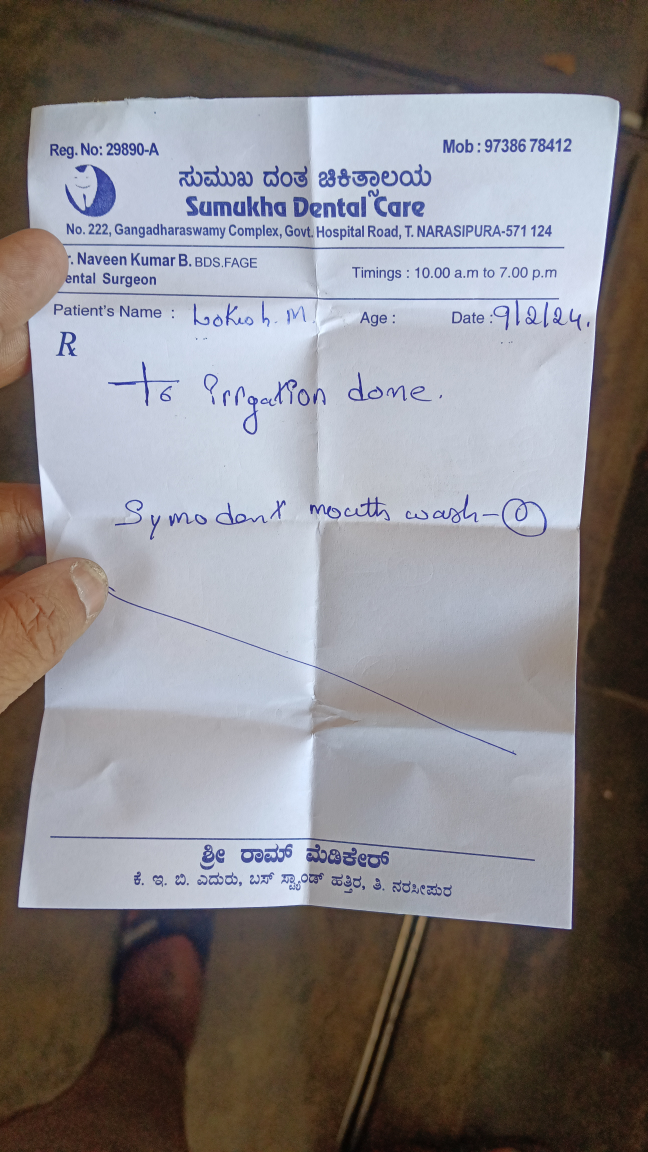 Reg. No: 29890-A
Mob : 97386 78412
ಸುಮುಖ ದಂತ ಚಿಕಿತ್ಸಾಲಯ
Sumukha Dental Care
No. 222, Gangadharaswamy Complex, Govt. Hospital Road, T. NARASIPURA-571 124
r. Naveen Kumar B. BDS.FAGE
ental Surgeon
Timings : 10.00 a.m to 7.00 p.m
Patient's Name : Lokesh. M. Age : Date : 9/2/24.
R
6 irrgation done.
Symodent mouth wash - 1
ಶ್ರೀ ರಾಮ್ ಮೆಡಿಕೇರ್
ಕೆ. ಇ. ಬಿ. ಎದುರು, ಬಸ್ ಸ್ಟ್ಯಾಂಡ್ ಹತ್ತಿರ, ತಿ. ನರಸೀಪುರ